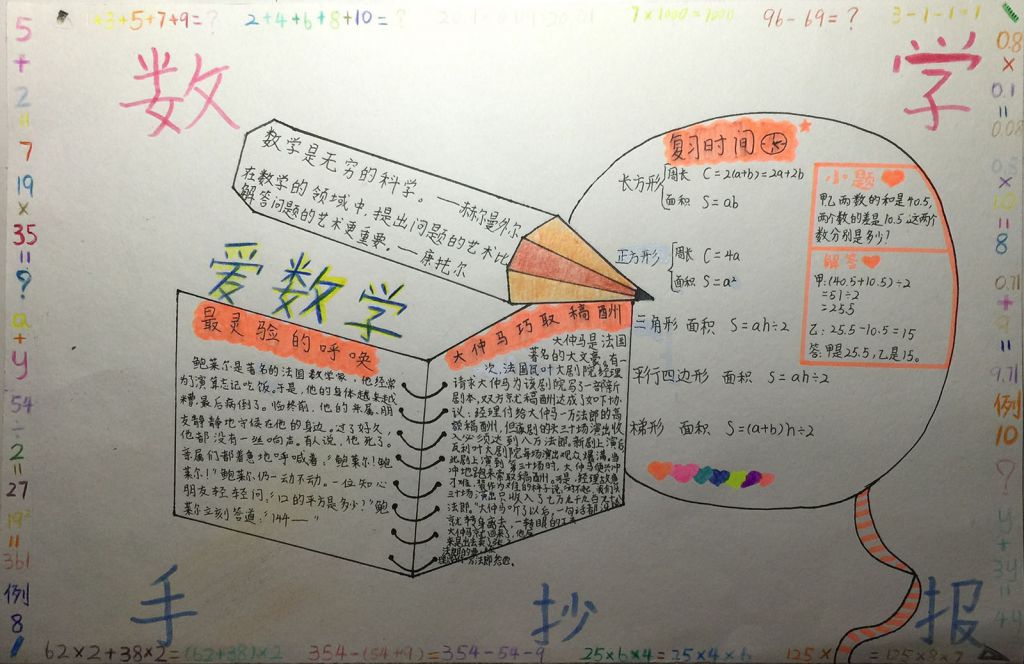 3+5+7+9=?
2+4+6+8+10=?
7×1000=7000
96-69=?
3-1-1=1
数学
数学是无穷的科学。——赫尔曼外尔
在数学的领域中,提出问题的艺术比
解答问题的艺术更重要。——康托尔
爱数学
最灵验的呼唤
鲍莱尔是著名的法国数学家,他经常
为了演算忘记吃饭。于是,他的身体越来越
糟,最后病倒了。临终前,他的亲属、朋
友静静地守候在他的身边。过了好久,
他都没有一丝响声。有人说,他死了。
亲属们都着急地呼喊着:“鲍莱尔!鲍
莱尔!”鲍莱尔仍一动不动。一位知心
朋友轻轻问:“12的平方是多少?”鲍
莱尔立刻答道:“144——”
大仲马巧取稿酬
大仲马是法国
著名的大文豪。有一
次,法国瓦叶大剧院经理
请求大仲马为该剧院写了一部新
剧本,双方就稿酬达成了如下协
议:经理付给大仲马一万法郎的高
额稿酬,但该剧的头三十场演出收
入必须达到八万法郎。新剧上演后
瓦利叶大剧院每场演出观众爆满。当
此剧上演到第三十场时,大仲马便兴冲
冲地跑来索取稿酬。
复习时间
长方形
周长 C=2(a+b)=2a+2b
面积 S=ab
正方形
周长 C=4a
面积 S=a²
三角形 面积 S=ah÷2
平行四边形 面积 S=ah÷2
梯形 面积 S=(a+b)h÷2
小题
甲乙两数的和是40.5,
两个数的差是10.5,这两个
数分别是多少?
解答
甲:(40.5+10.5)÷2
=51÷2
=25.5
乙:25.5-10.5=15
答:甲是25.5,乙是15。
5+2=7
19×35=?
a+y
54÷2=27
19²=361
例8
0.8×0.1=0.08
0.71+9=9.71
例10
手抄报
62×2+38×2=(62+38)×2
354-(54+9)=354-54-9
25×6×4=25×4×6
=125×8×2